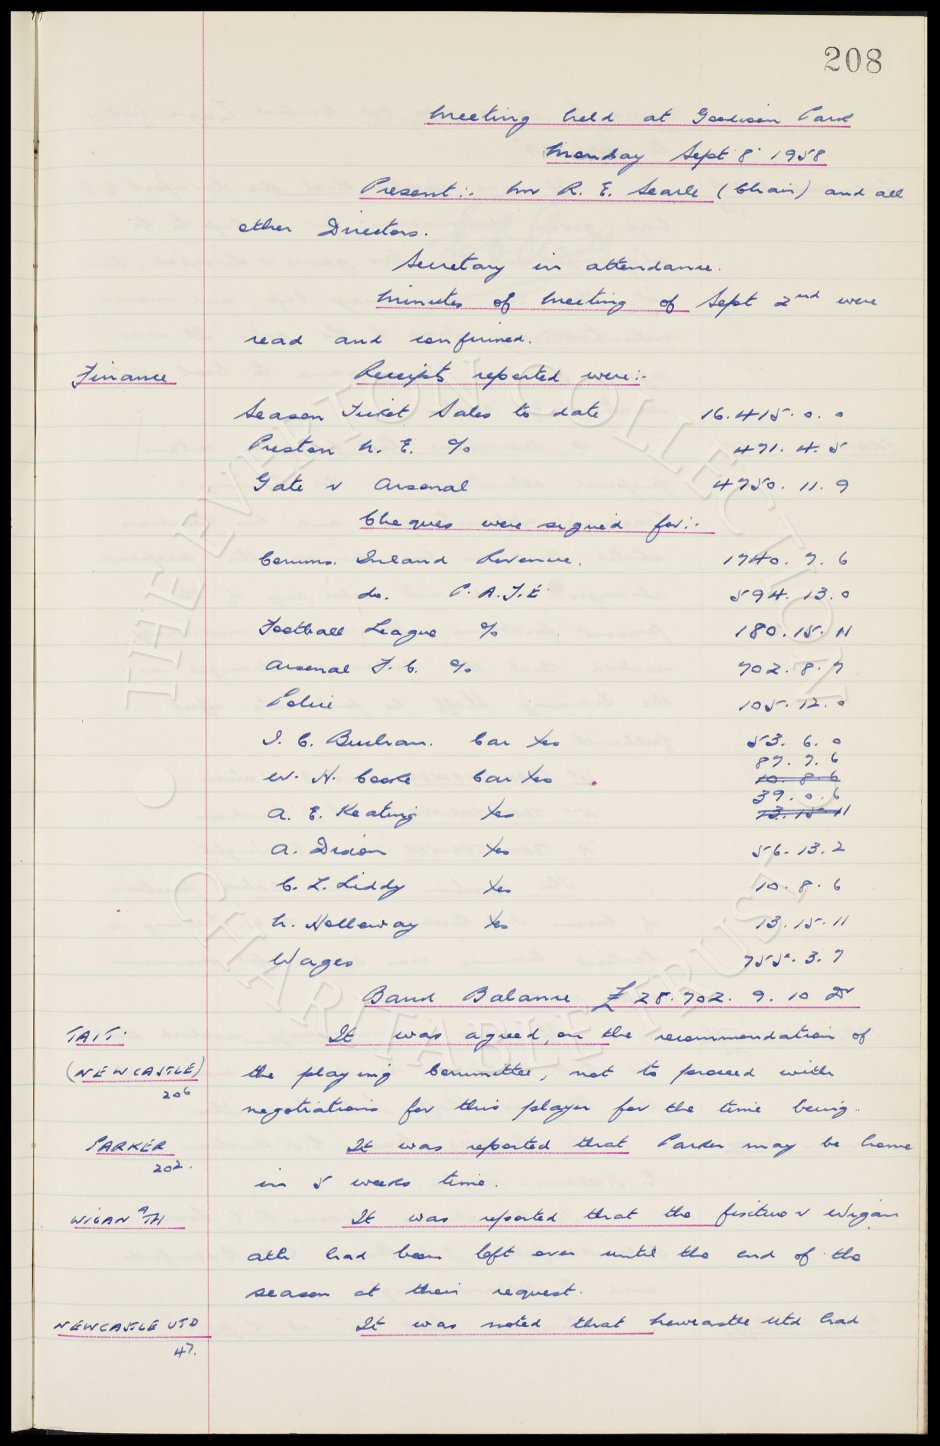 208
Meeting held at Goodison Park
Monday Sept 8th 1958
Present:- Mr R. E. Searle (Chair) and all
other Directors.
Secretary in attendance.
Minutes of Meeting of Sept 2nd were
read and confirmed.
Finance Receipts reported were:-
Season Ticket Sales to date 16.415.0.0
Preston N. E. % 471.4.5
Gate v Arsenal 4750.11.9
Cheques were signed for:-
Comms. Inland Revenue. 1740.7.6
do. P.A.Y.E. 594.13.0
Football League % 180.15.11
Arsenal F.C. % 702.8.7
Police 105.12.0
I. C. Buchan. Car Xes 53.6.0
87.7.6
W. H. Cooke Car Xes 10.8.6
39.0.6
A. E. Keating Xes 13.15.11
A. Dixon Xes 56.13.2
C. L. Liddy Xes 10.8.6
N. Holloway Xes 13.15.11
Wages 755.3.7
Bank Balance £28.702.9.10 Dr
TAIT. It was agreed, on the recommendation of
(NEWCASTLE) the playing Committee, not to proceed with
206
negotiations for this player for the time being.
PARKER It was reported that Parker may be home
202.
in 5 weeks time.
WIGAN ATH It was reported that the fixture v Wigan
ath had been left over until the end of the
season at their request.
NEWCASTLE UTD It was noted that Newcastle Utd had
47.
THE EVERTON COLLECTION
CHARITABLE TRUST